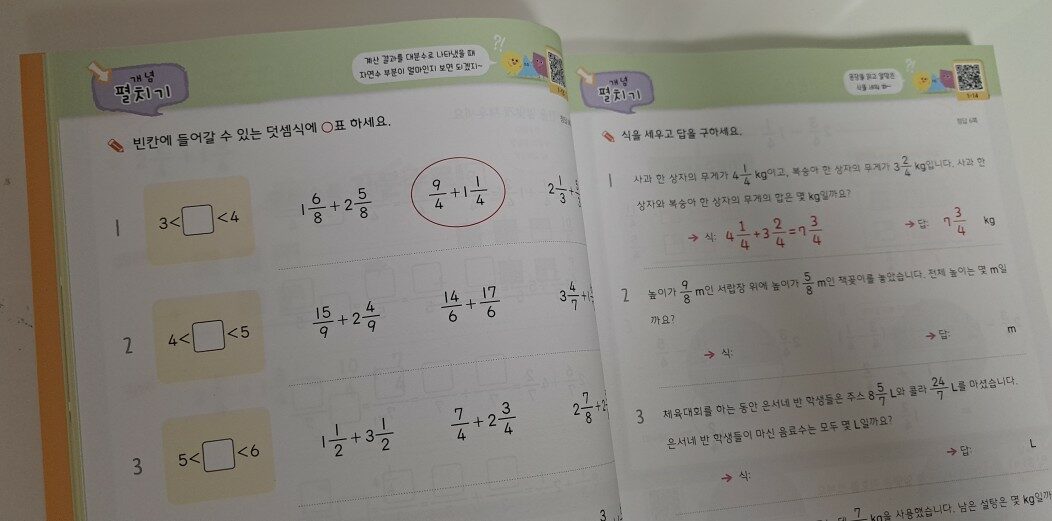 계산 결과를 대분수로 나타냈을 때
자연수 부분이 얼마인지 보면 되겠지~
?!
개념
펼치기
빈칸에 들어갈 수 있는 덧셈식에 ○표 하세요.
1 3<□<4 1 6/8 + 2 5/8 9/4 + 1 1/4 2 1/3 +
2 4<□<5 15/9 + 2 4/9 14/6 + 17/6 3 4/7 +
3 5<□<6 1 1/2 + 3 1/2 7/4 + 2 3/4 2 7/8 +
?!
개념
펼치기
1-14
식을 세우고 답을 구하세요.
정답 6쪽
1 사과 한 상자의 무게가 4 1/4 kg이고, 복숭아 한 상자의 무게가 3 2/4 kg입니다. 사과 한
상자와 복숭아 한 상자의 무게의 합은 몇 kg일까요?
→ 식: 4 1/4 + 3 2/4 = 7 3/4 → 답: 7 3/4 kg
2 높이가 9/8 m인 서랍장 위에 높이가 5/8 m인 책꽂이를 놓았습니다. 전체 높이는 몇 m일
까요?
→ 식: → 답: m
3 체육대회를 하는 동안 은서네 반 학생들은 주스 8 5/7 L와 콜라 24/7 L를 마셨습니다.
은서네 반 학생들이 마신 음료수는 모두 몇 L일까요?
→ 식: → 답: L
7 kg을 사용했습니다. 남은 설탕은 몇 kg일까